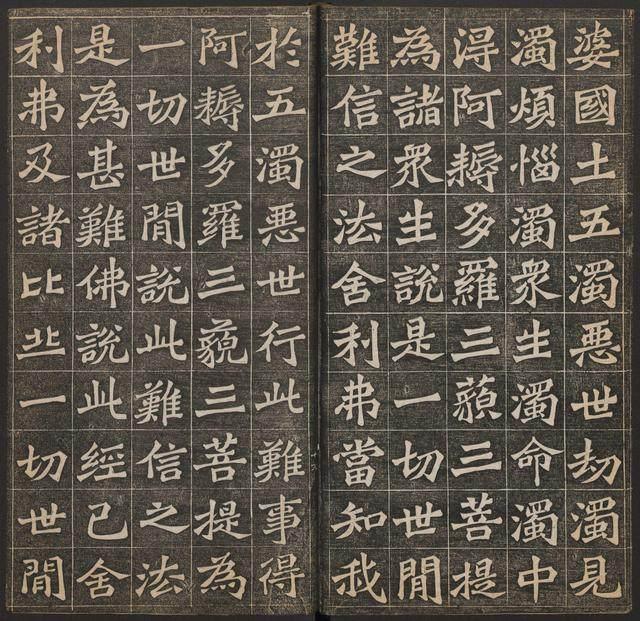 婆國土五濁悪世劫濁見
濁煩惱濁衆生濁命濁中
淂阿耨多羅三藐三菩提
為諸衆生説是一切世閒
難信之法舍利弗當知我
於五濁悪世行此難事得
阿耨多羅三藐三菩提為
一切世閒説此難信之法
是為甚難佛説此經已舍
利弗及諸比丘一切世閒